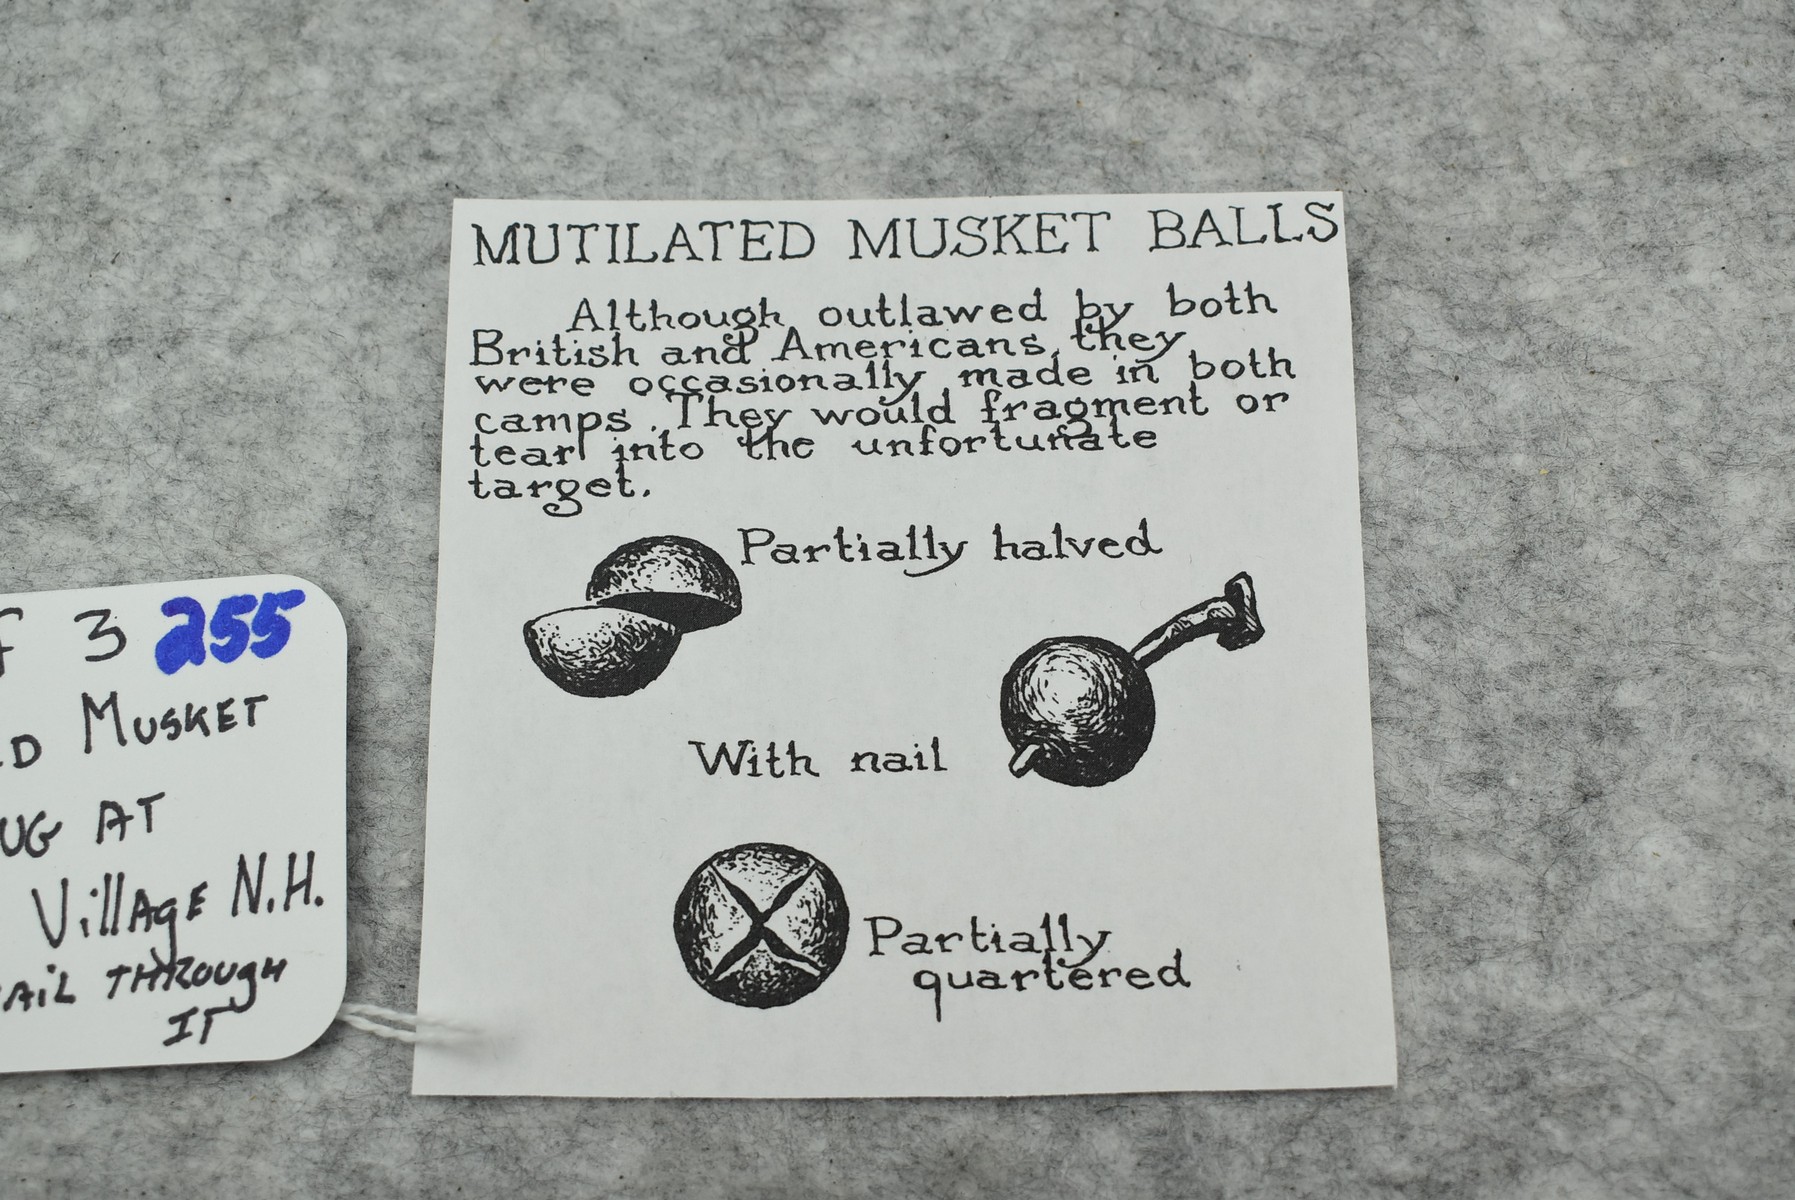 MUTILATED MUSKET BALLS
Although outlawed by both
British and Americans, they
were occasionally made in both
camps. They would fragment or
tear into the unfortunate
target.
Partially halved
With nail
Partially
quartered
3 255
MUSKET
AT
VillAgE N.H.
THROUgH
IT